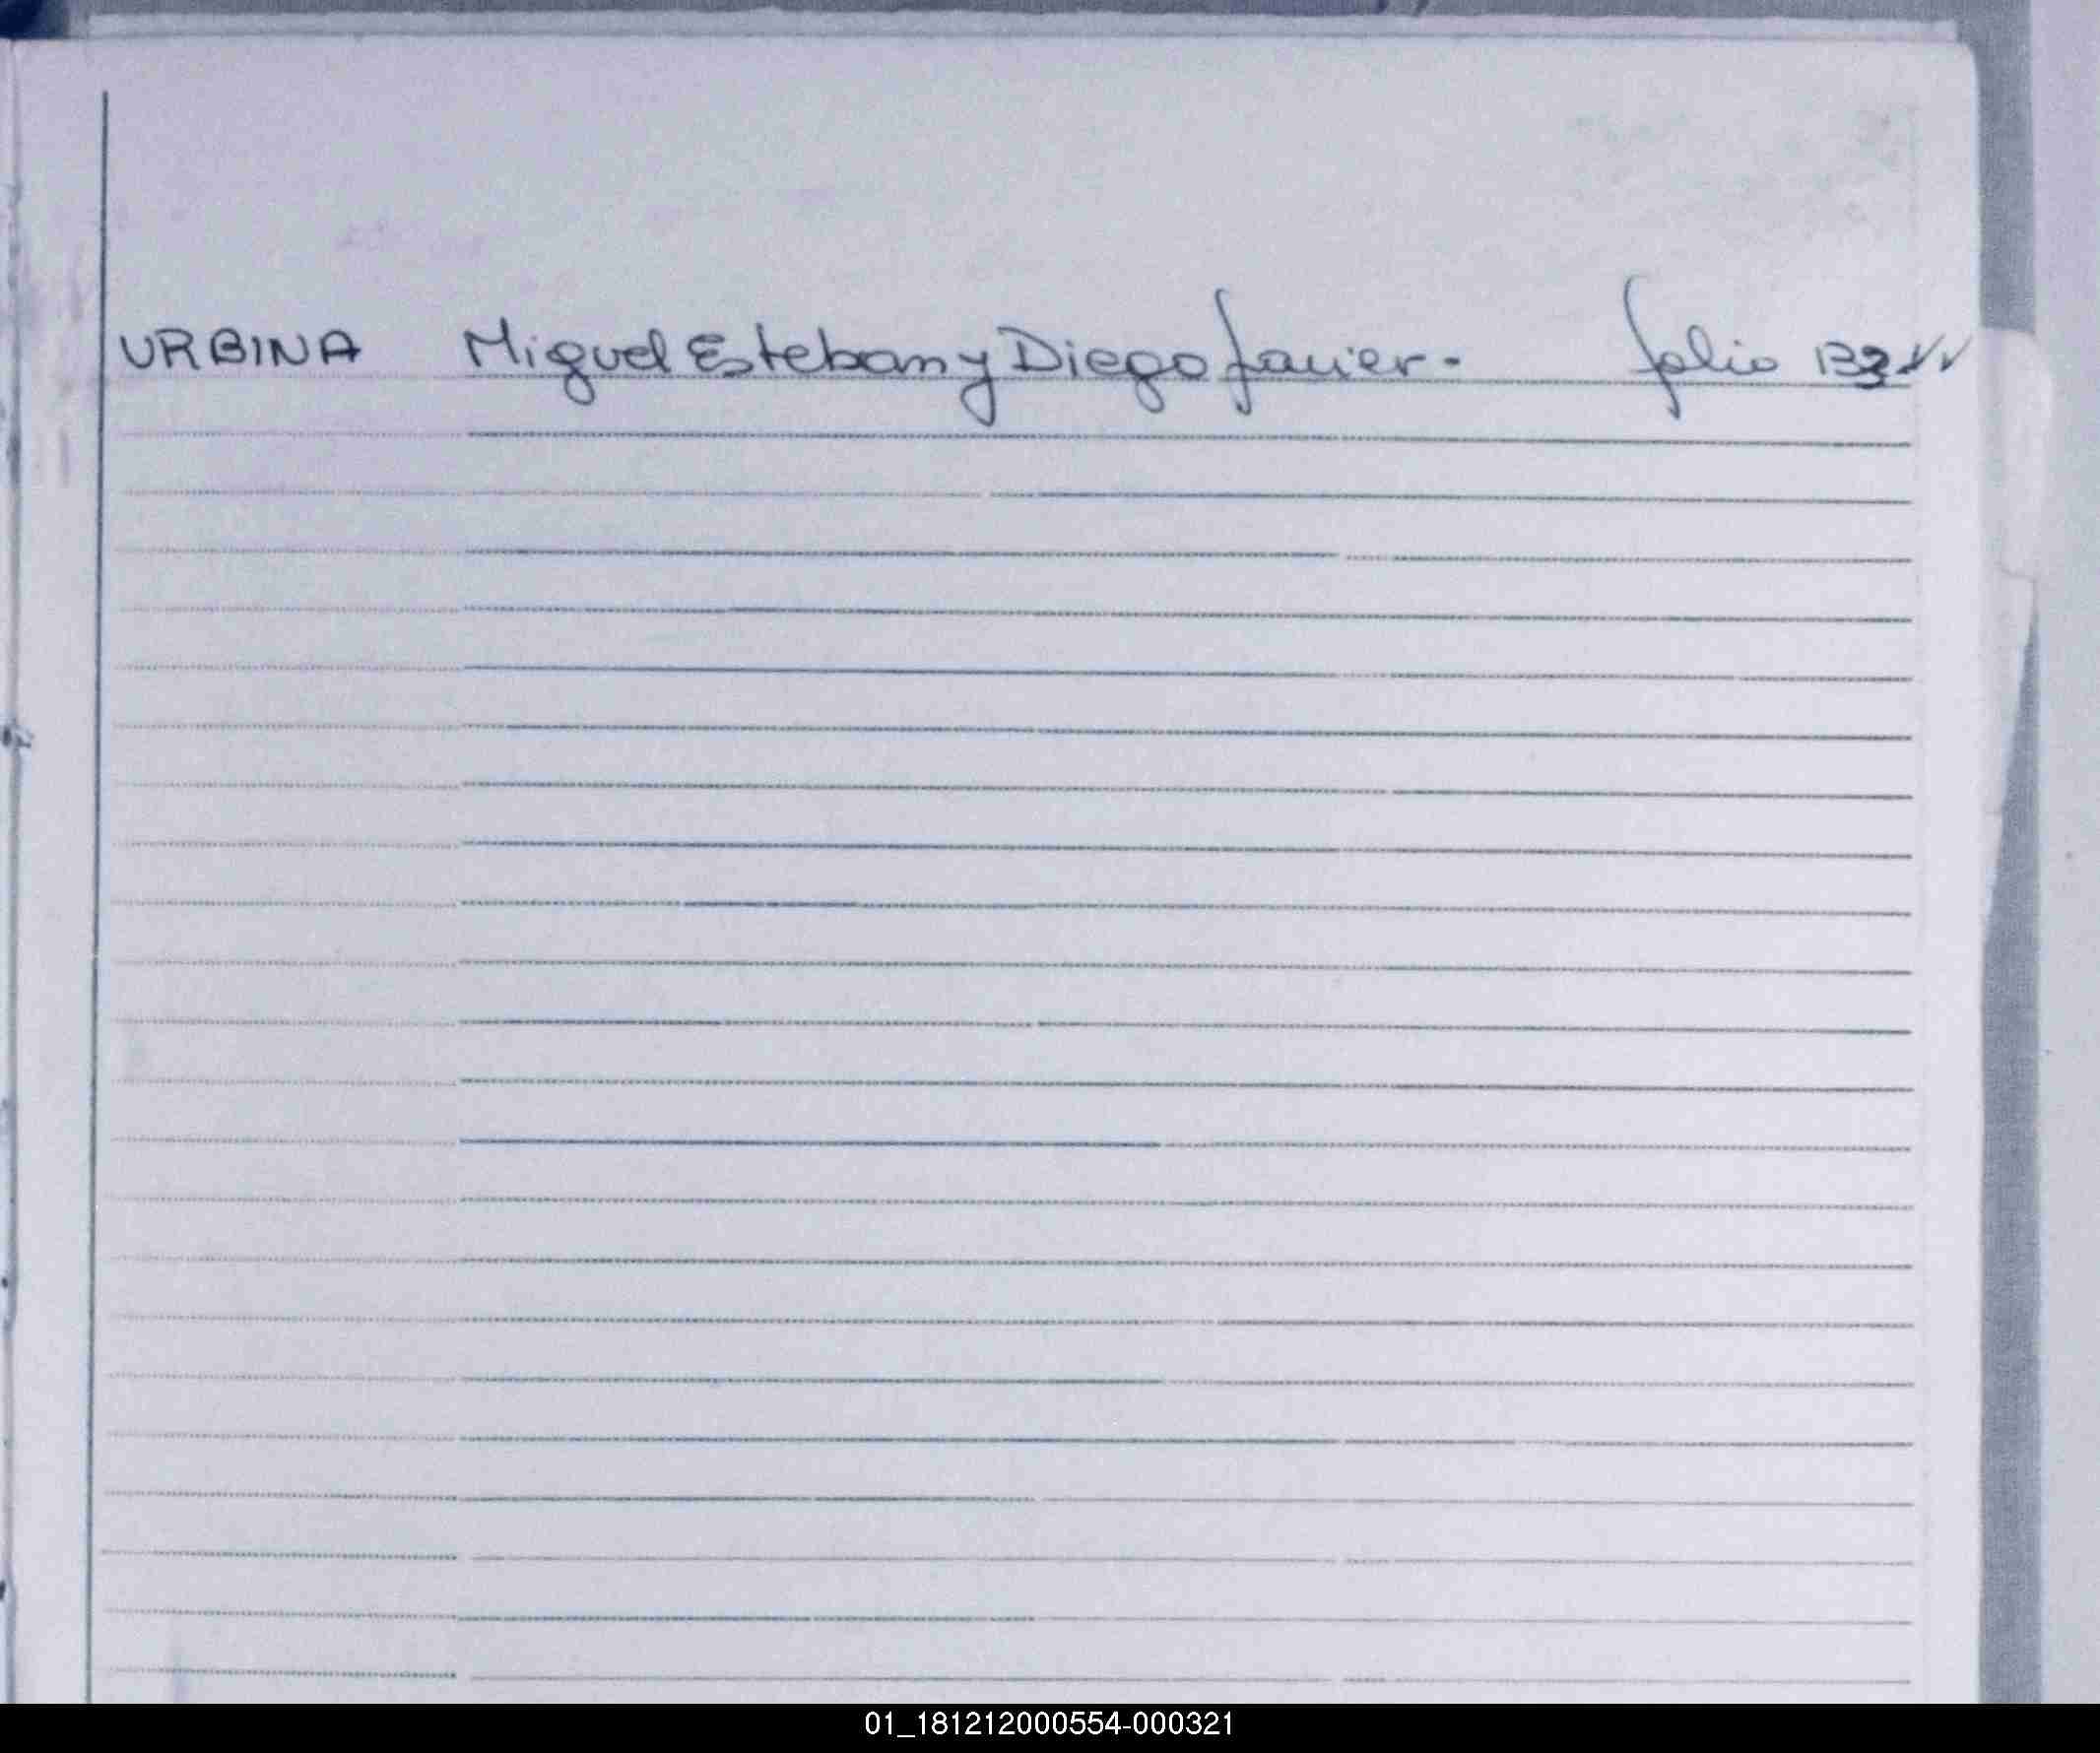 URBINA Miguel Esteban y Diego Javier. folio 133 vv
01_181212000554-000321